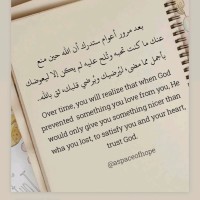 بعد مرور أعوام ستدرك أن الله حين منع
عنك ما كنت تحبه وتُلح عليه لم يكن إلا ليعوضك
بأجمل مما مضى، ليُرضيك ويُرضي قلبك، ثق بالله..
Over time, you will realize that when God
prevented something you love from you, He
would only give you something nicer than
wha you lost, to satisfy you and your heart,
trust God.
@aspaceofhope